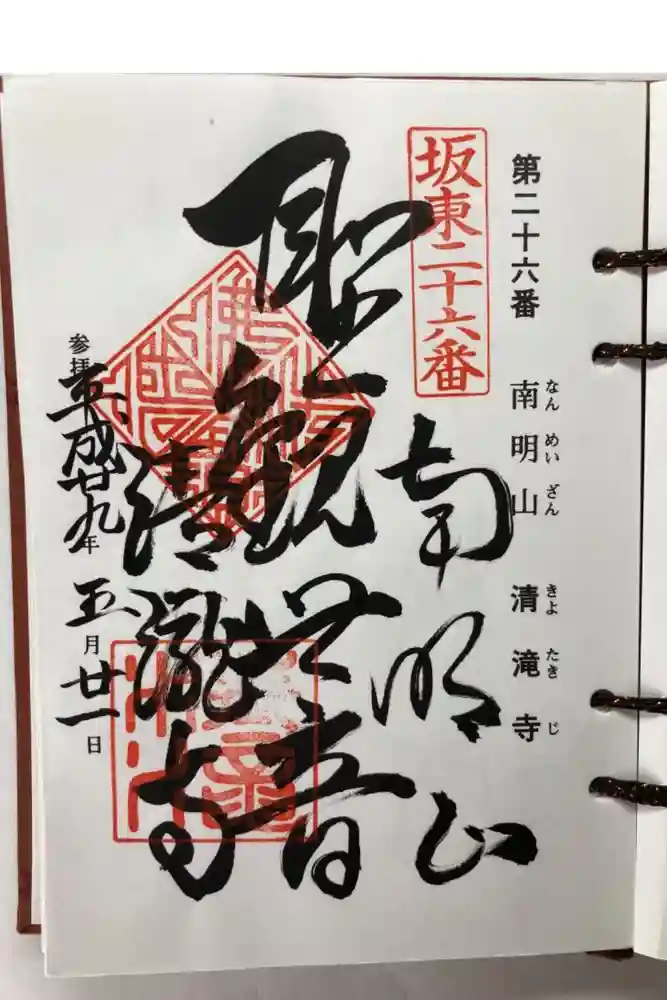 第二十六番 南明山 清滝寺
なん めい ざん きよ たき じ
坂東二十六番
南明山
聖観世音
清瀧寺
参拝 平成廿九年 五月廿一日